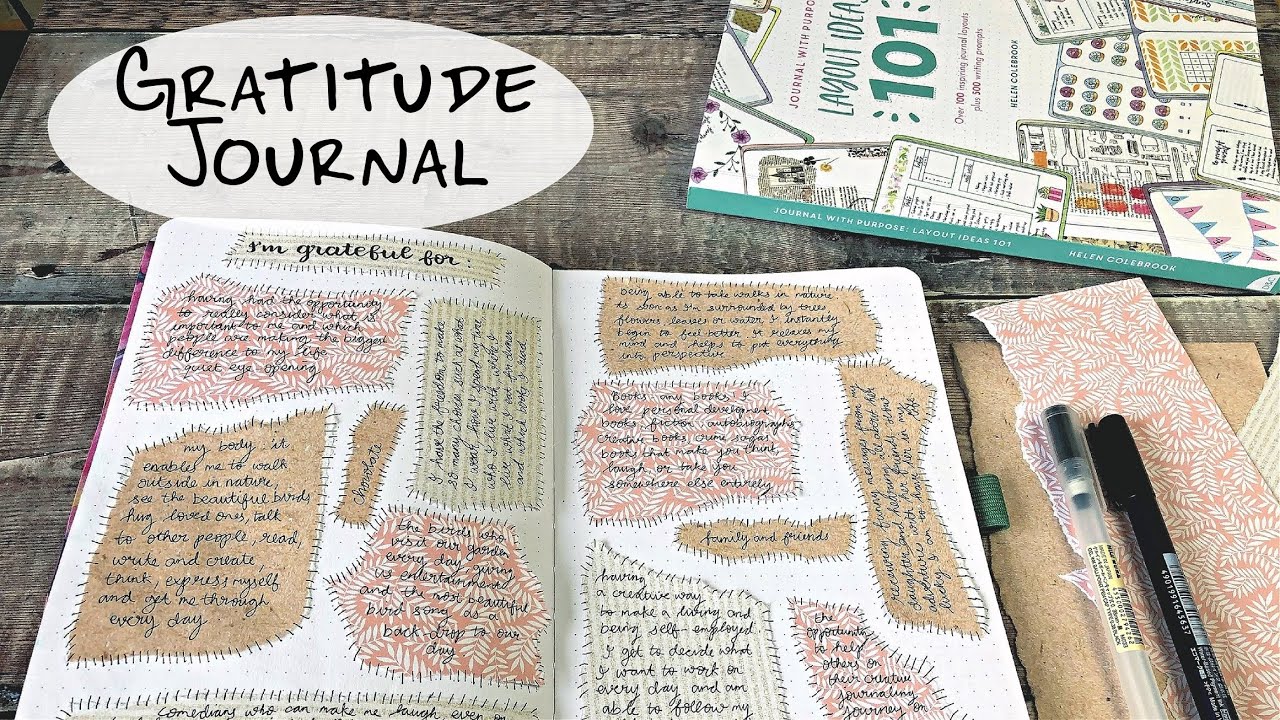 GRATITUDE
JOURNAL
JOURNAL WITH PURPOSE
LAYOUT IDEAS
101
Over 100 inspiring journal layouts
plus 500 writing prompts
HELEN COLEBROOK
JOURNAL WITH PURPOSE: LAYOUT IDEAS 101
HELEN COLEBROOK
I'm grateful for:
having had the opportunity
to really consider what is
important to me and which
people are making the biggest
difference to my life
- quiet eye opening
I have the freedom to make
so many choices, such as what
I want, how I spend my time,
who I live with, what
live, what I
my body, it
enables me to walk
outside in nature,
see the beautiful birds,
hug loved ones, talk
to other people, read,
write and create,
think, express myself
and get me through
every day
chocolate
the birds who
visit our garden
every day, giving
us entertainment
and the most beautiful
bird song as a
back-drop to our
day
comedians who can make me laugh, even on
being able to take walks in nature
as soon as I'm surrounded by trees
flowers, leaves or water I instantly
begin to feel better. It relaxes my
mind and helps to put everything
into perspective
Books, any books! I
love personal development
books, fiction, autobiographies,
creative books, crime sagas,
books that make you think,
laugh or take you
somewhere else entirely
family and friends
receiving funny messages from my
adventures
I am to have her in my life
having
a creative way
to make a living and
being self-employed
I get to decide what
I want to work on
every day and am
able to follow my
the
opportunity
to help
others on
their creative
journaling
journey on
4901994643637